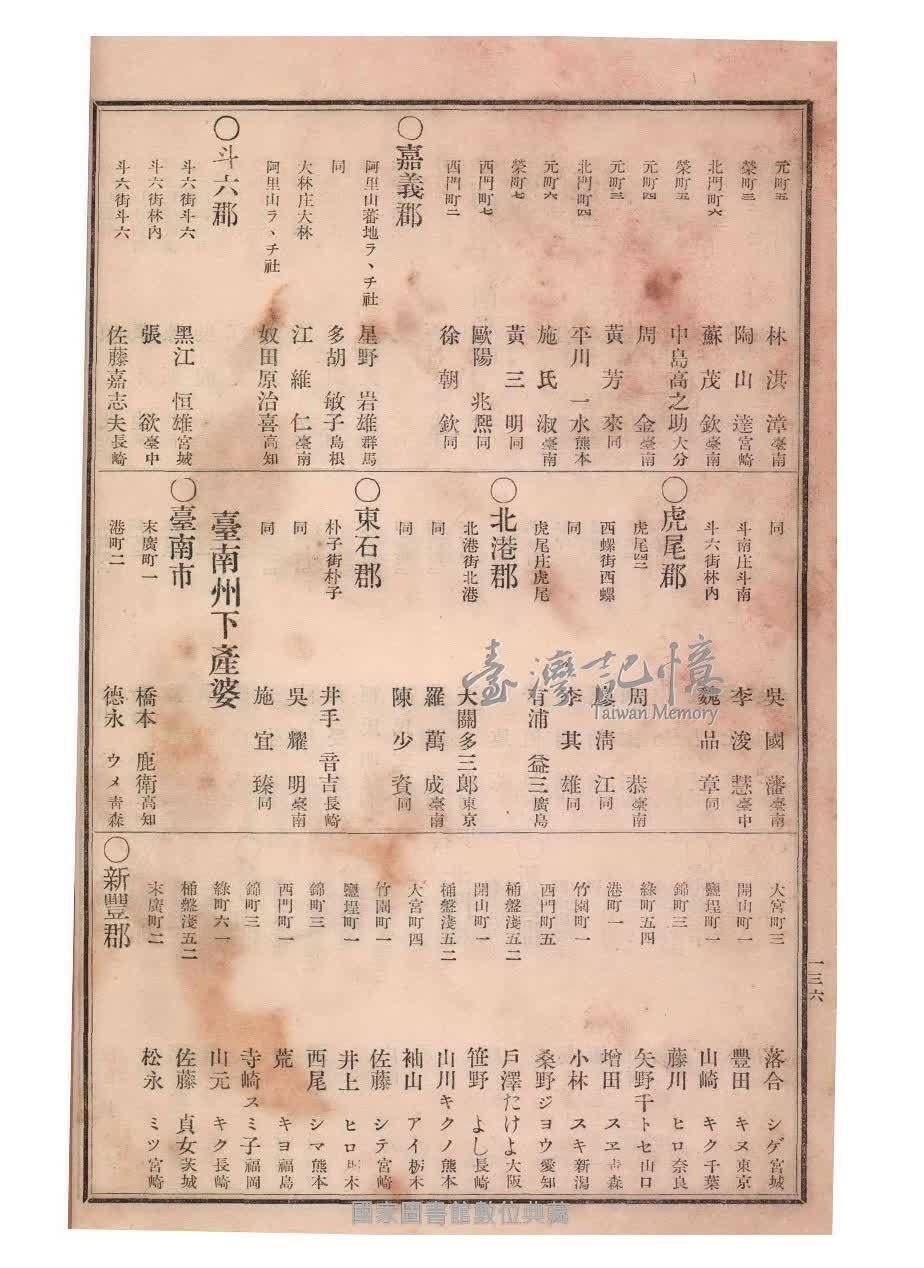 元町五 林洪漳 臺南
榮町三 陶山達 宮崎
北門町六 蘇茂欽 臺南
榮町五 中島高之助 大分
元町四 周金 臺南
元町三 黃芳來 同
北門町四 平川一水 熊本
元町六 施氏淑 臺南
榮町七 黃三明 同
西門町七 歐陽兆熙 同
西門町二 徐朝欽 同
〇嘉義郡
阿里山蕃地ラヽチ社 星野岩雄 群馬
同 多胡敏子 島根
大林庄大林 江維仁 臺南
阿里山ラヽチ社 奴田原治喜 高知
〇斗六郡
斗六街斗六 黑江恒雄 宮城
斗六街林內 張欲 臺中
斗六街斗六 佐藤嘉志夫 長崎
同 吳國藩 臺南
斗南庄斗南 李浚慧 臺中
斗六街林內 魏品章 同
〇虎尾郡
虎尾四二 周恭 臺南
西螺街西螺 廖清江 同
同 李其雄 同
虎尾庄虎尾 有浦益三 廣島
〇北港郡
北港街北港 大關多三郎 東京
同 羅萬成 臺南
同 陳少資 同
〇東石郡
朴子街朴子 井手音吉 長崎
同 吳耀明 臺南
同 施宜臻 同
臺南州下產婆
〇臺南市
末廣町一 橋本鹿衛 高知
港町二 德永ウメ 青森
大宮町三 落合シゲ 宮城
開山町一 豐田キヌ 東京
鹽埕町一 山崎キク 千葉
錦町三 藤川ヒロ 奈良
綠町五四 矢野千トセ 山口
港町一 增田スヱ 青森
竹園町一 小林スキ 新潟
西門町五 桑野ジヨウ 愛知
桶盤淺五二 戶澤たけよ 大阪
開山町一 笹野よし 長崎
桶盤淺五二 山川キクノ 熊本
大宮町四 袖山アイ 栃木
竹園町一 佐藤シテ 宮崎
鹽埕町一 井上ヒロ 木
錦町三 西尾シマ 熊本
西門町一 荒キヨ 福島
錦町三 寺崎スミ子 福岡
綠町六一 山元キク 長崎
桶盤淺五二 佐藤貞女 茨城
末廣町二 松永ミツ 宮崎
〇新豐郡
一三六
臺灣記憶
Taiwan Memory
國家圖書館數位典藏